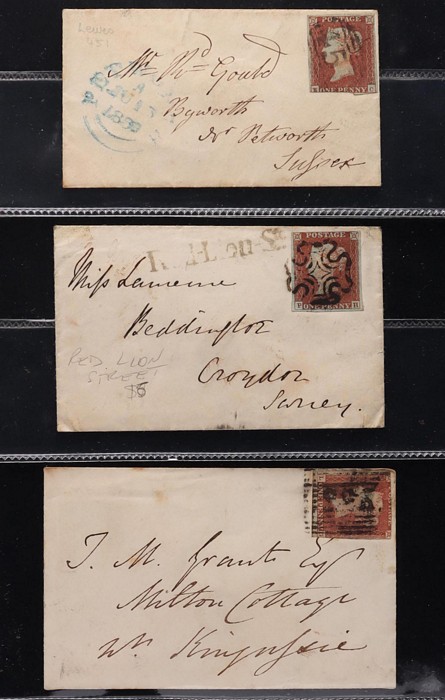 Lewes
451
Mr. Rd. Gould
Byworth
Nr Petworth
Sussex
POSTAGE
ONE PENNY
Red-Lion-St
Miss Lawerne
Beddington
Croydon
Surrey.
RED LION
STREET
$5
POSTAGE
ONE PENNY
J. M. Grant Esq
Milton Cottage
Nr. Kingussie